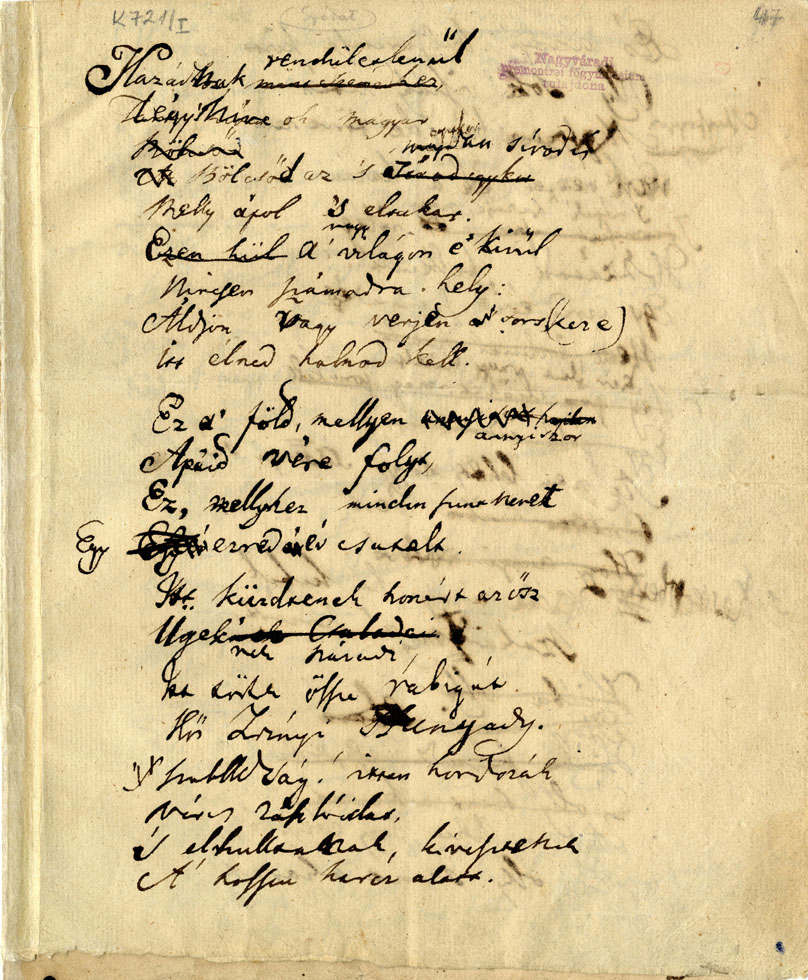 K 721/I
47
Szózat
Nagyváradi
premontrei főgymnasium
tulajdona
rendületlenűl
Hazádnak
Légy híve oh magyar
Bölcsőd
majdan sírod is
Bölcsőd az 's
Melly ápol 's eltakar.
nagy
Ezen kül A' világon e' kivűl
Nincsen számodra hely:
Áldjon vagy verjen a' sors (keze)
itt élned halnod kell.
Ez a' föld, mellyen
annyiszor
Apáid vére folyt,
Ez, mellyhez minden szent nevet
Egy ezredév csatolt.
Itt küzdtenek honért a' hős
Ugek Családai
nek hadai
Itt törtek össze rabigát
Hős Zrínyi Hunyady.
Szabadság! itten hordozák
véres zászlóidat,
's elhulltanak, kivesztenek
A' hosszu harcz alatt.